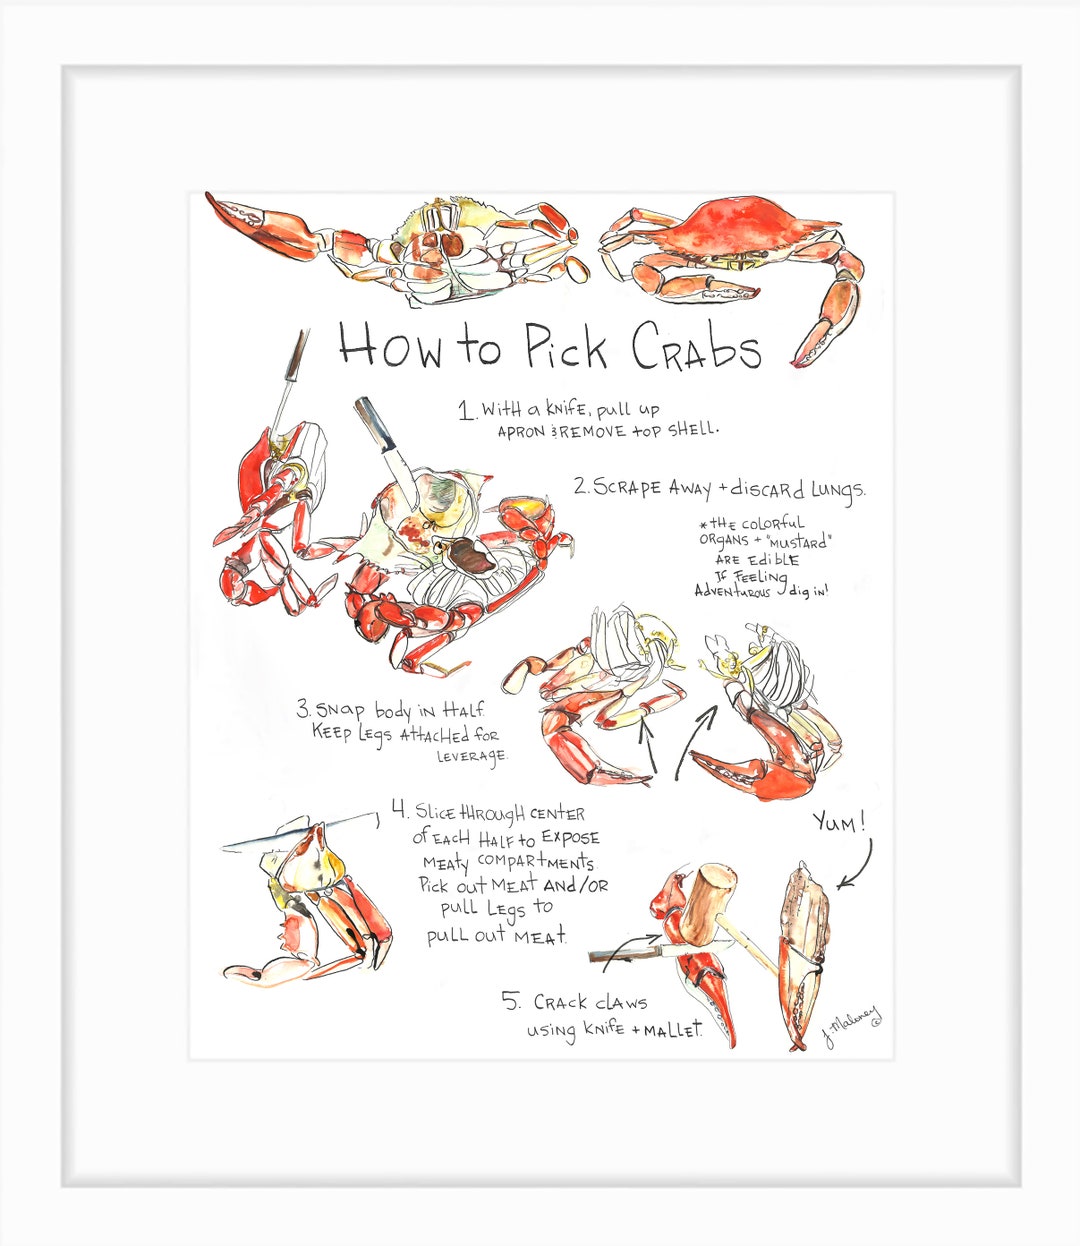 How to Pick Crabs
1. With a knife, pull up
apron & remove top shell.
2. Scrape away + discard lungs.
*the colorful
organs + "mustard"
are edible
If feeling
adventurous dig in!
3. Snap body in half.
Keep legs attached for
leverage.
4. Slice through center
of each half to expose
meaty compartments
Pick out meat and/or
pull legs to
pull out meat.
Yum!
5. Crack claws
using knife + mallet.
J. Maloney ©